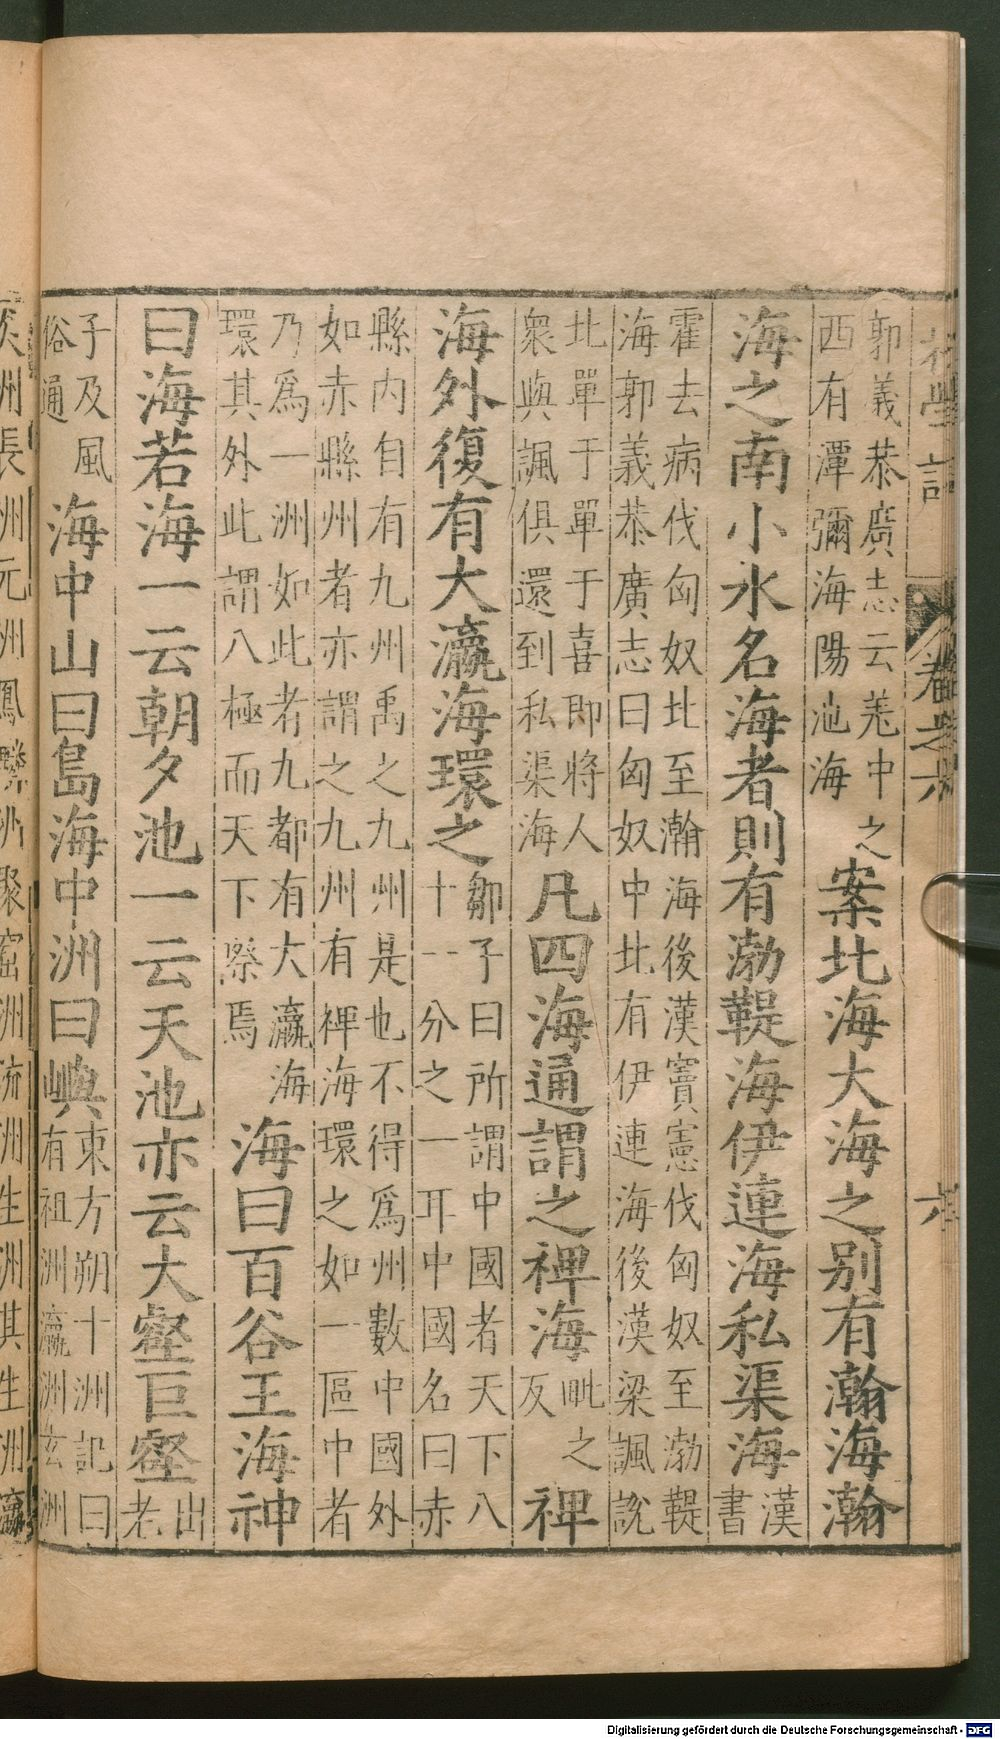 初學記 卷之六 六
郭義恭廣志云羌中之
西有潭彌海陽池海
案北海大海之别有瀚海瀚
海之南小水名海者則有渤鞮海伊連海私渠海
漢
書
霍去病伐匈奴北至瀚海後漢竇憲伐匈奴至渤鞮
海郭義恭廣志曰匈奴中北有伊連海後漢梁諷說
北單于單于喜即將人
衆與諷俱還到私渠海
凡四海通謂之裨海
毗之
反
裨
海外復有大瀛海環之
鄒子曰所謂中國者天下八
十一分之一耳中國名曰赤
縣内自有九州禹之九州是也不得爲州數中國外
如赤縣州者亦謂之九州有裨海環之如一區中者
乃爲一洲如此者九都有大瀛海
環其外此謂八極而天下際焉
海曰百谷王海神
曰海若海一云朝夕池一云天池亦云大壑巨壑
出
老
子及風
俗通
海中山曰島海中洲曰嶼
東方朔十洲記曰
有祖洲瀛洲玄洲
炎洲長洲元洲
鳳麟洲聚窟洲流洲生洲其生洲瀛
Digitalisierung gefördert durch die Deutsche Forschungsgemeinschaft - DFG